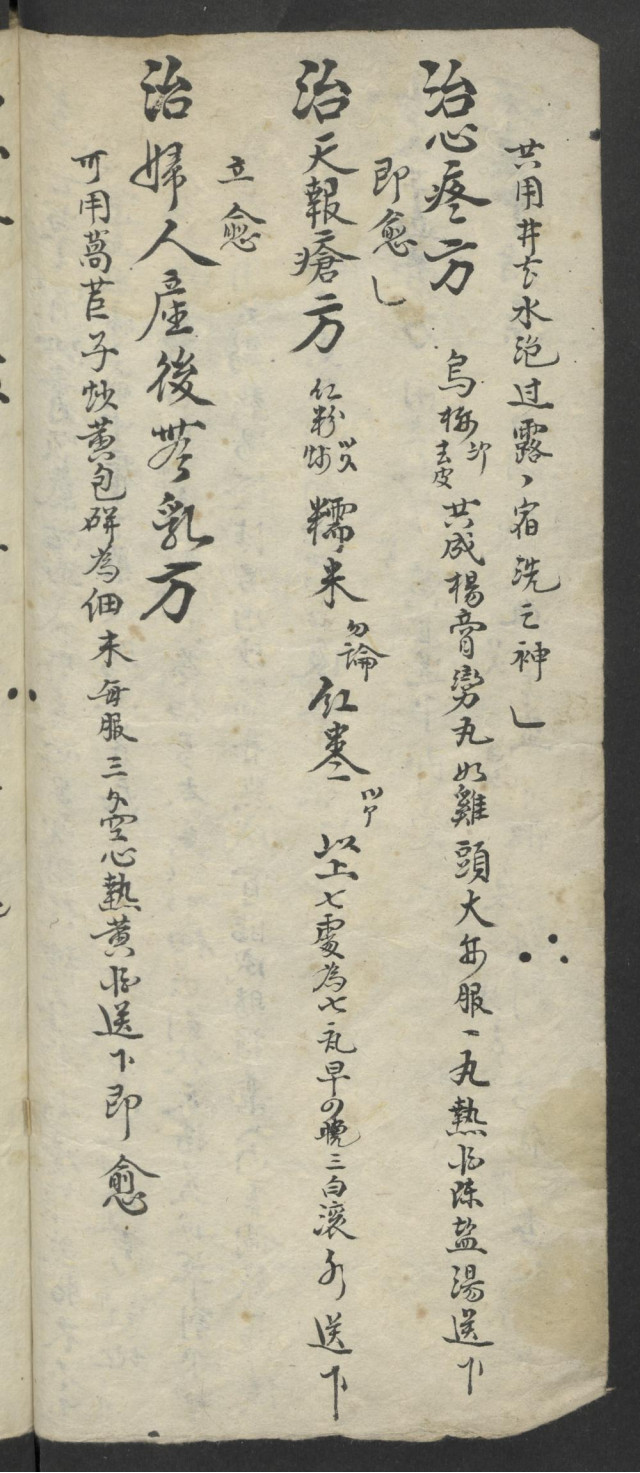 共用井花水泡过露一宿洗之神
治心疼方 烏梅 去皮 共成楊膏 丸如雞頭大每服一丸熱 陈盐湯送下
即愈
治天報瘡方 紅粉 糯米 勿論 紅棗 以上七 為七 早 晚三白滚水送下
立愈
治婦人産後無乳方
可用萵苣子炒黄色研為细末每服三 空心熱黄 送下即愈